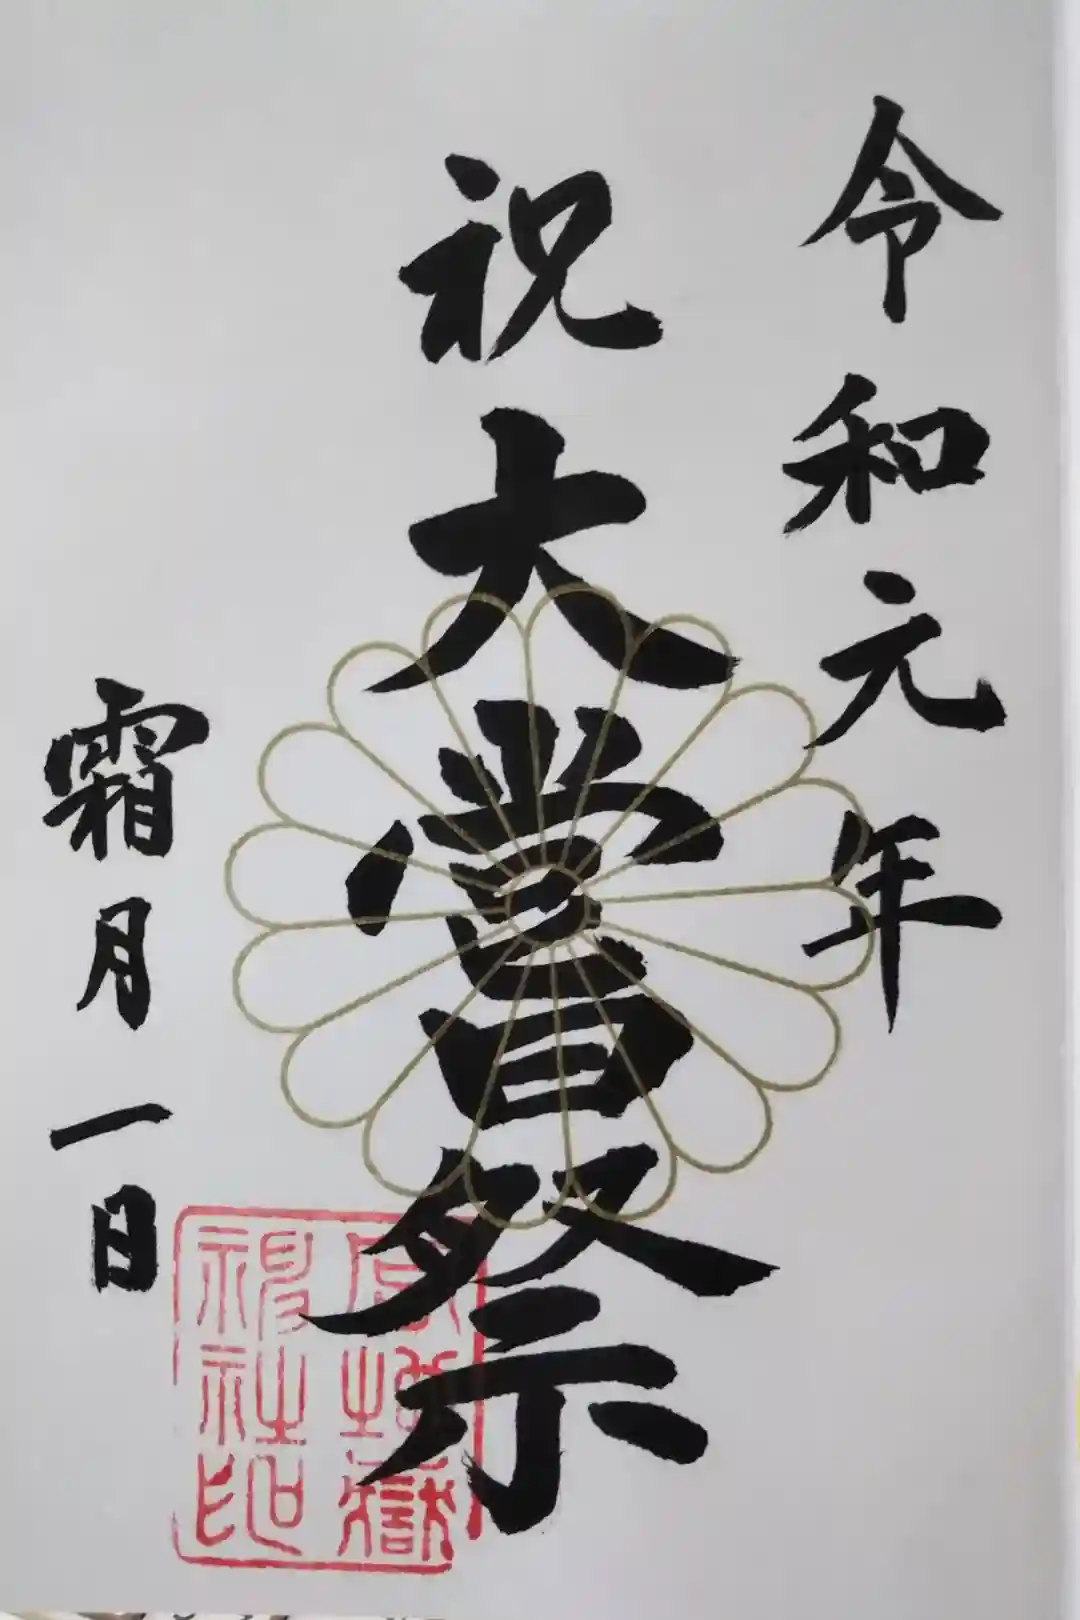 令和元年
祝大嘗祭
霜月一日